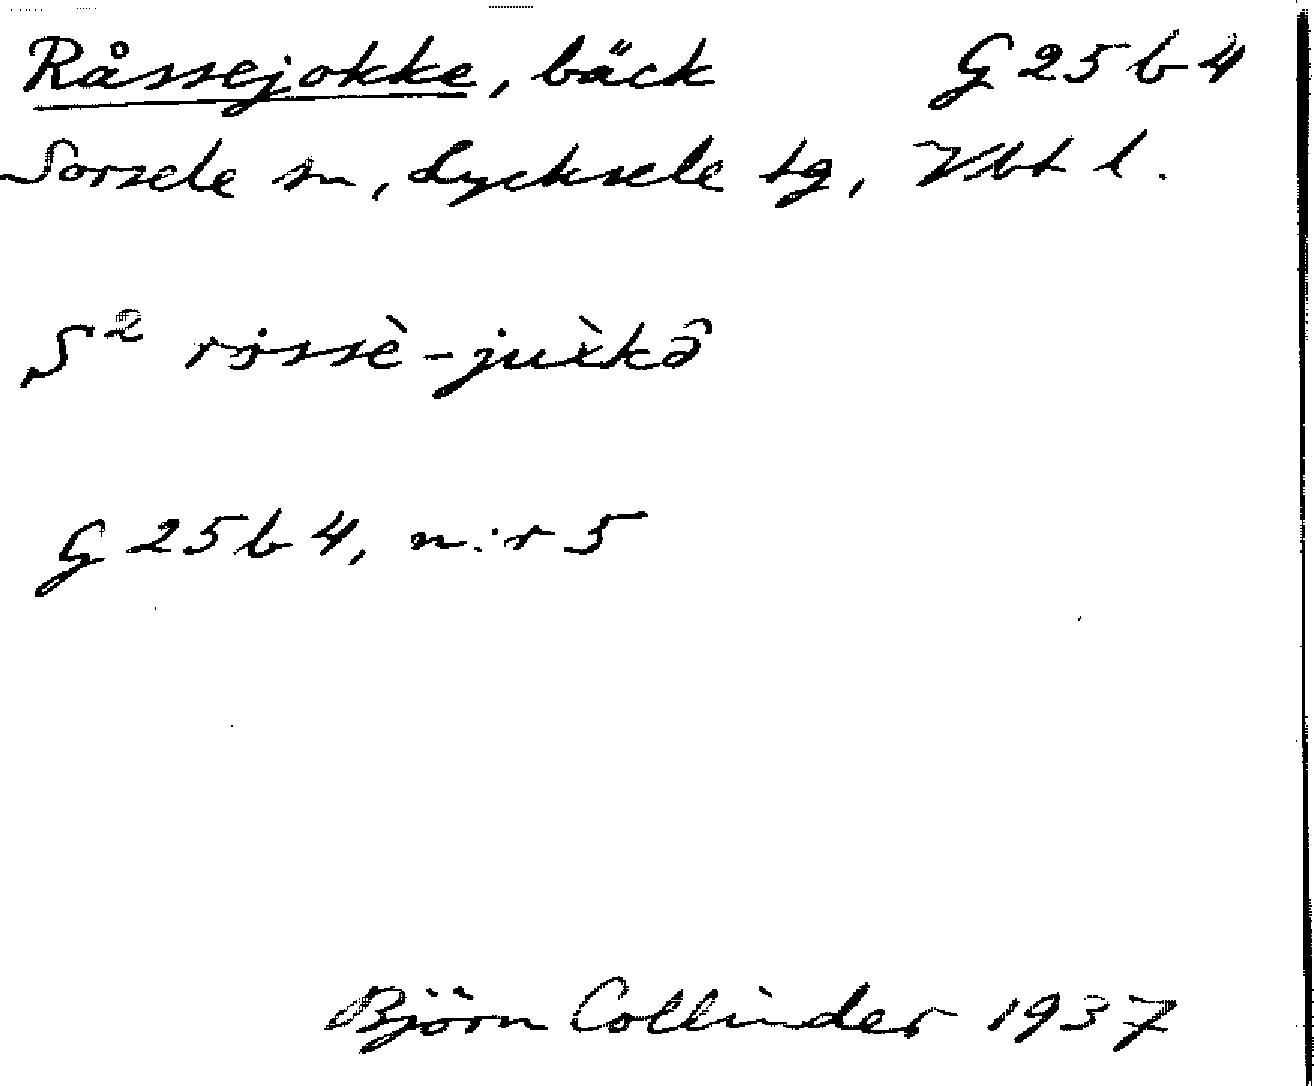 Råssejokke, bäck G 25 b 4
Sorsele sn, Lycksele tg, Vbt l.
S²
G 25 b 4, n:r 5
Björn Collinder 1937